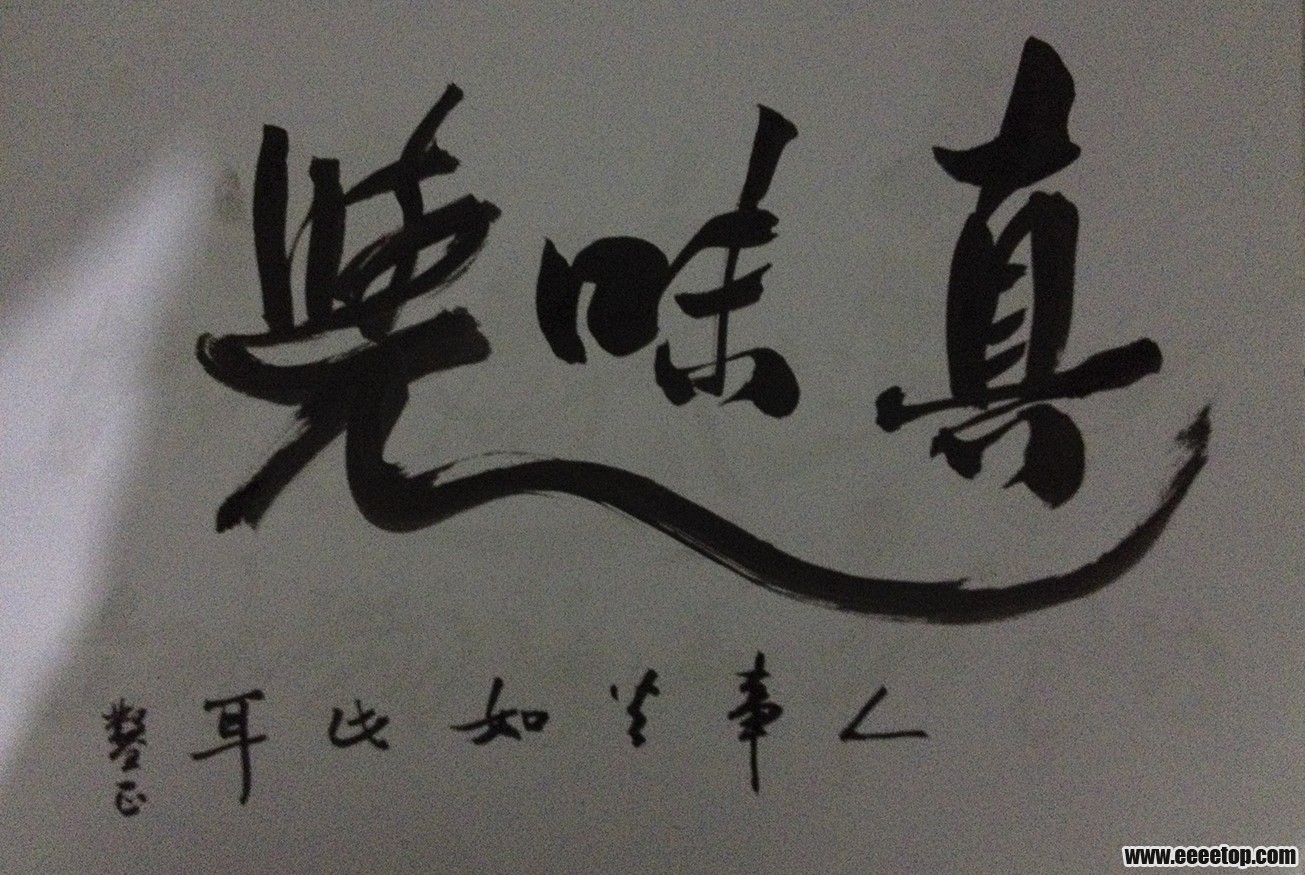 真味覺
人事如此耳
www.eeeetop.com